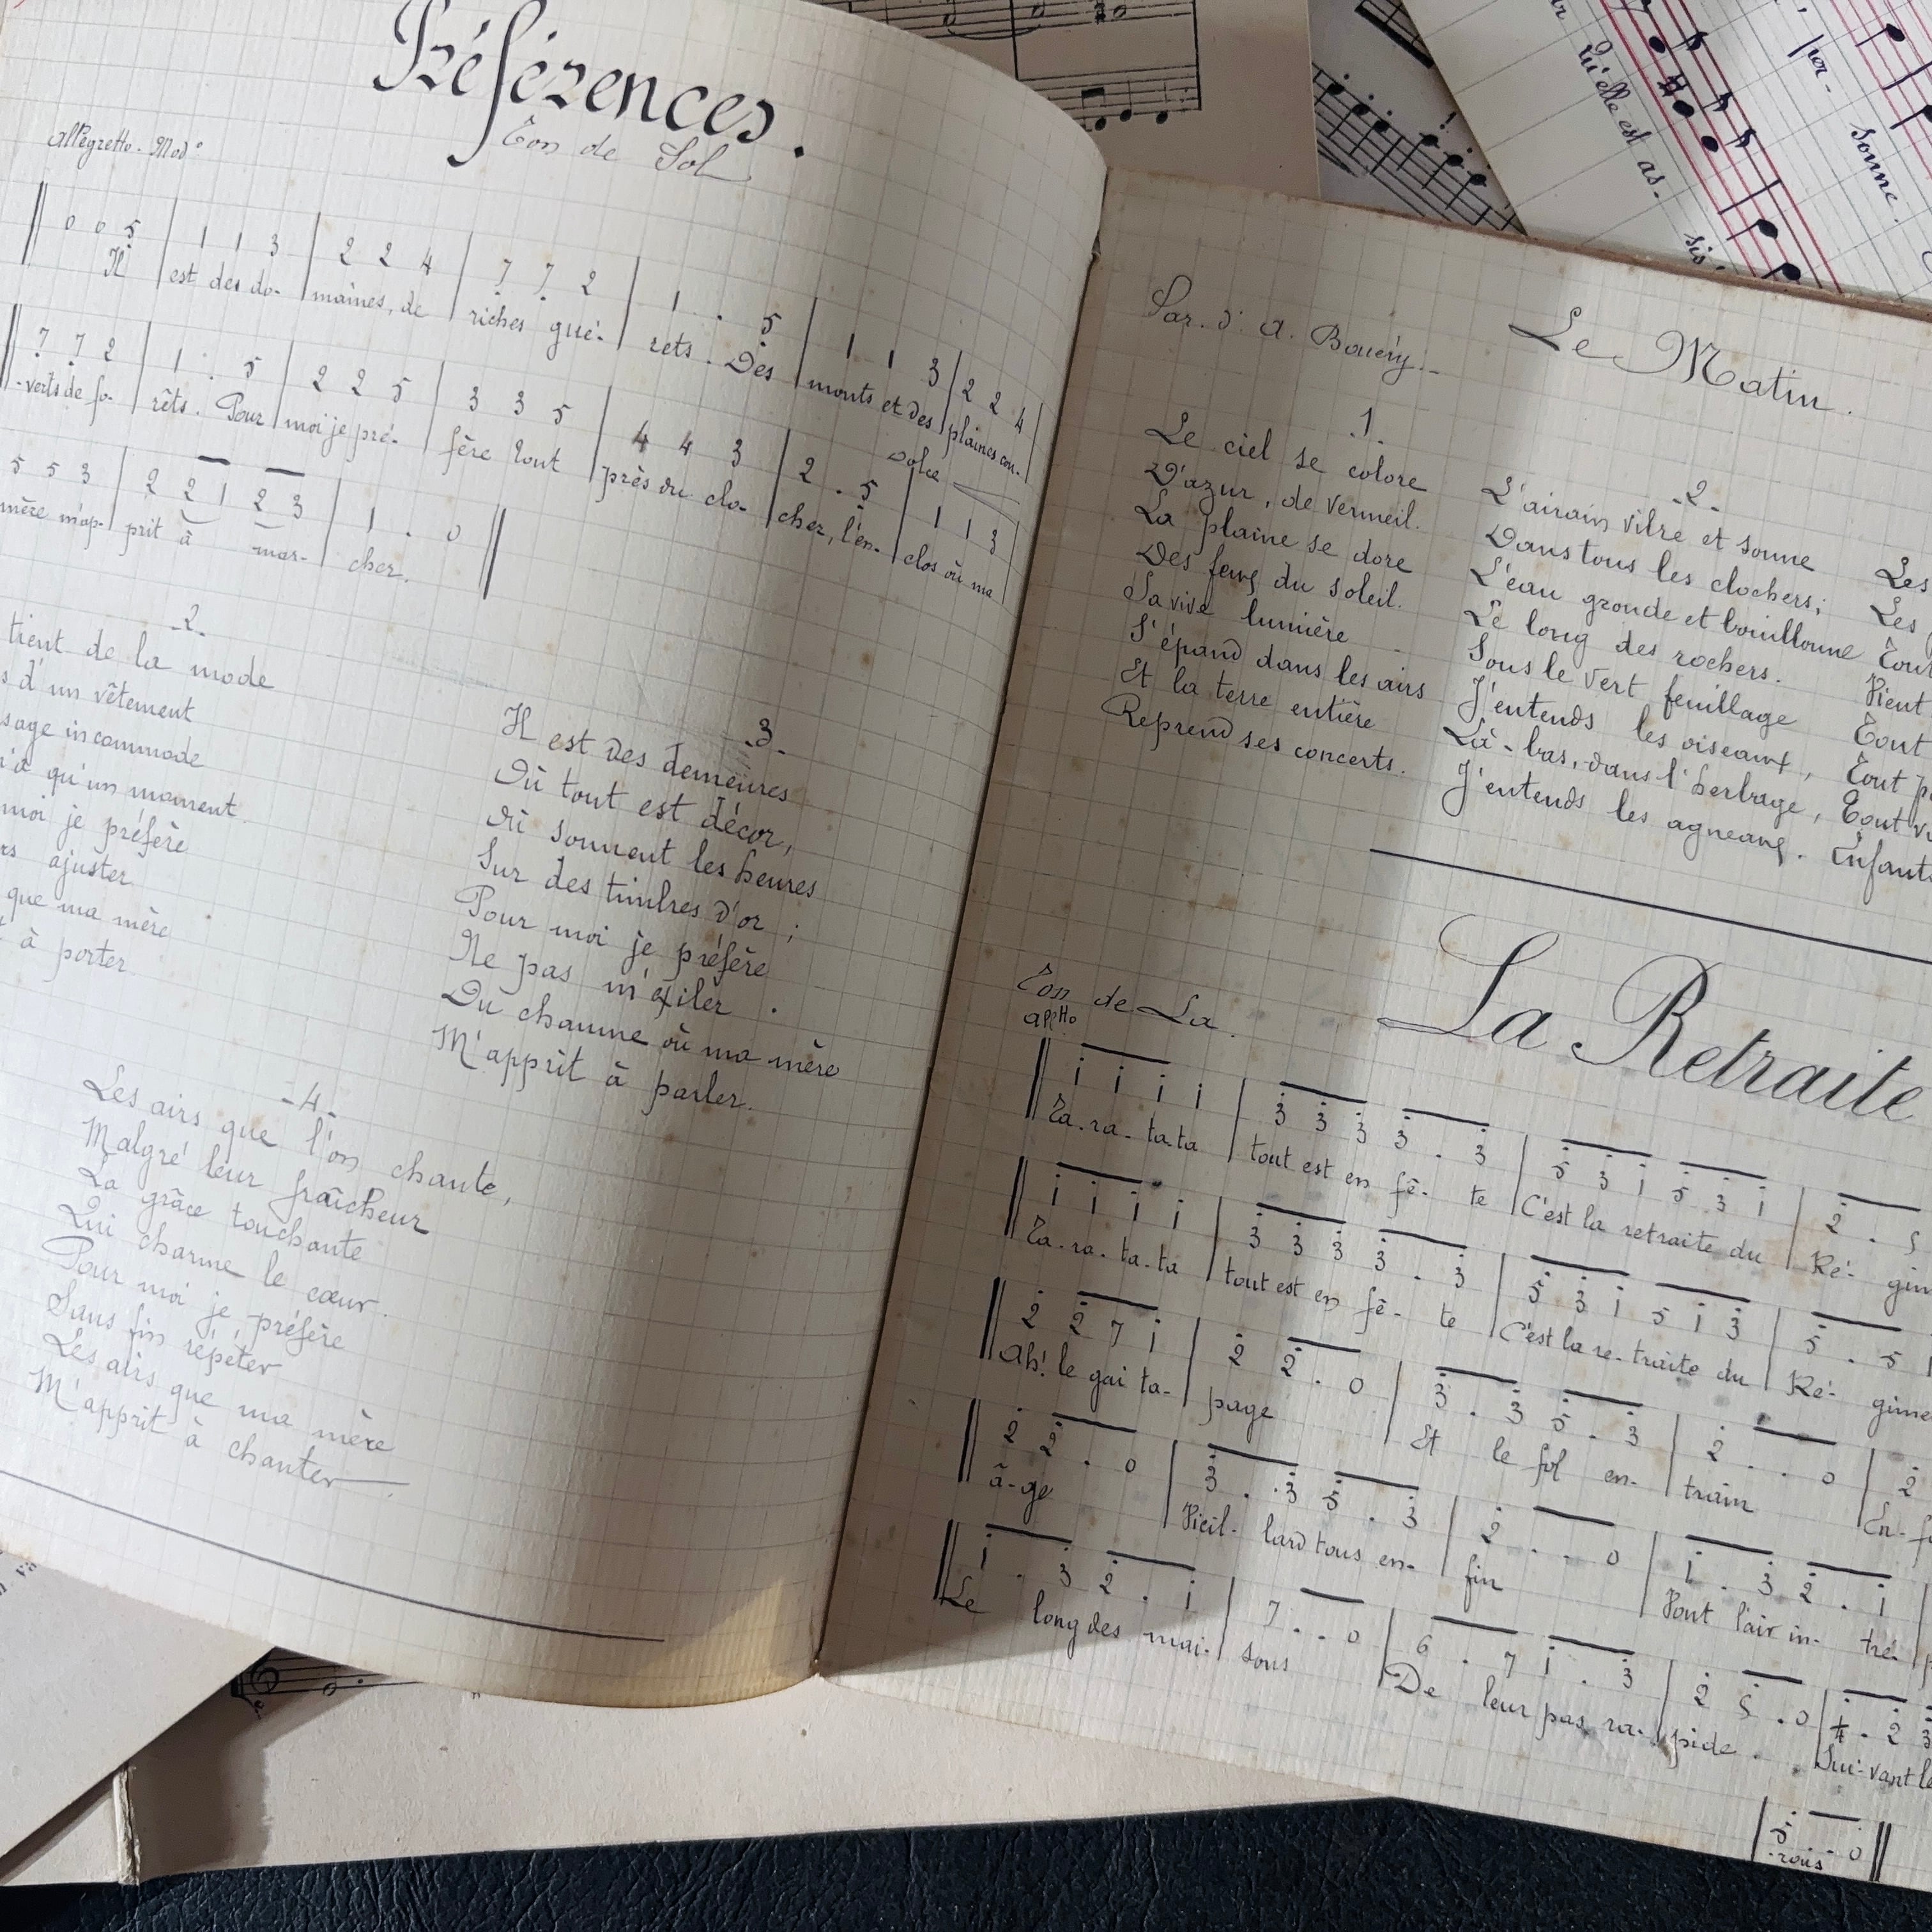 Préférences.
Ton de Sol
Allegretto. Mod°
0 0 5 | 1 1 3 | 2 2 4 | 7 7 2 | 1 . 5 | 1 1 3 | 2 2 4
Il est des do- maines, de riches gué- rets. Des monts et des plaines cou-
7 7 2 | 1 . 5 | 2 2 5 | 3 3 5 | 4 4 3 | 2 . 5 | 1 1 3
-verts de fo- rêts. Pour moi je pré- fère tout près du clo- cher, l'en- clos où ma
dolce
5 5 3 | 2 2 1 2 3 | 1 . 0
mère m'ap- prit à mar- cher.
-2-
tient de la mode
s d'un vêtement
sage incommode
qu'un moment.
moi je préfère
ajuster
que ma mère
à porter
-3-
Il est des demeures
Où tout est décor,
Où sonnent les heures
Sur des timbres d'or ;
Pour moi je préfère
Ne pas m'exiler.
Du chaume où ma mère
M'apprit à parler.
-4-
Les airs que l'on chante,
Malgré leur fraîcheur
La grâce touchante
Qui charme le cœur.
Pour moi je préfère
Sans fin répéter
Les airs que ma mère
M'apprit à chanter.
Par. d' A. Bouéry.
Le Matin.
.1.
Le ciel se colore
D'azur, de vermeil.
La plaine se dore
Des feux du soleil.
Sa vive lumière
S'épand dans les airs
Et la terre entière
Reprend ses concerts.
-2-
L'airain vibre et sonne
Dans tous les clochers;
L'eau gronde et bouillonne
Le long des rochers.
Sous le vert feuillage
J'entends les oiseaux,
Là-bas, dans l'herbage,
J'entends les agneaux.
Les
Les
Tout
Vient
Tout
Tout
Tout
Enfants
La Retraite
Ton de La.
Alltto
1 1 1 1 | 3 3 3 3 . 3 | 5 3 1 5 3 1 | 2 . 5
Ta-ra-ta-ta tout est en fê- te C'est la retraite du Ré- gim
1 1 1 1 | 3 3 3 3 . 3 | 5 3 1 5 1 3 | 5 . 5
Ta-ra-ta-ta tout est en fê- te C'est la re-traite du Ré- gime
2 2 7 1 | 2 2 . 0 | 3 . 3 5 . 3 | 2 . . 0 | 2
Ah! le gai ta- page Et le fol en- train En-f
2 2 . 0 | 3 . 3 5 . 3 | 2 . . 0 | 1 . 3 2 . 1
â-ge Vieil- lard tous en- fin Vont l'air in- tré-
1 . 3 2 . 1 | 7 . . 0 | 6 . 7 1 . 3 | 2 5 . 0 | 4 . 2 3
Le long des mai- sons De leur pas ra- pide. Sui-vant le
5 . . 0
-rons
Qu'elle est as-
sis'
por-
sonne.